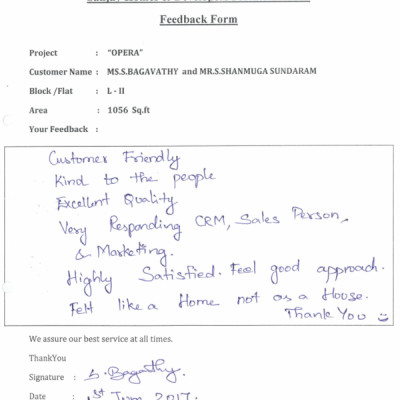 Feedback Form
Project : "OPERA"
Customer Name : MS.S.BAGAVATHY and MR.S.SHANMUGA SUNDARAM
Block /Flat : L - II
Area : 1056 Sq.ft
Your Feedback :
Customer Friendly
Kind to the people
Excellent Quality
Very Responding CRM, Sales Person,
& Marketing.
Highly Satisfied. Feel good approach.
Felt like a Home not as a House.
Thank You
We assure our best service at all times.
ThankYou
Signature : S. Bagathy.
Date : 1st June 2017.